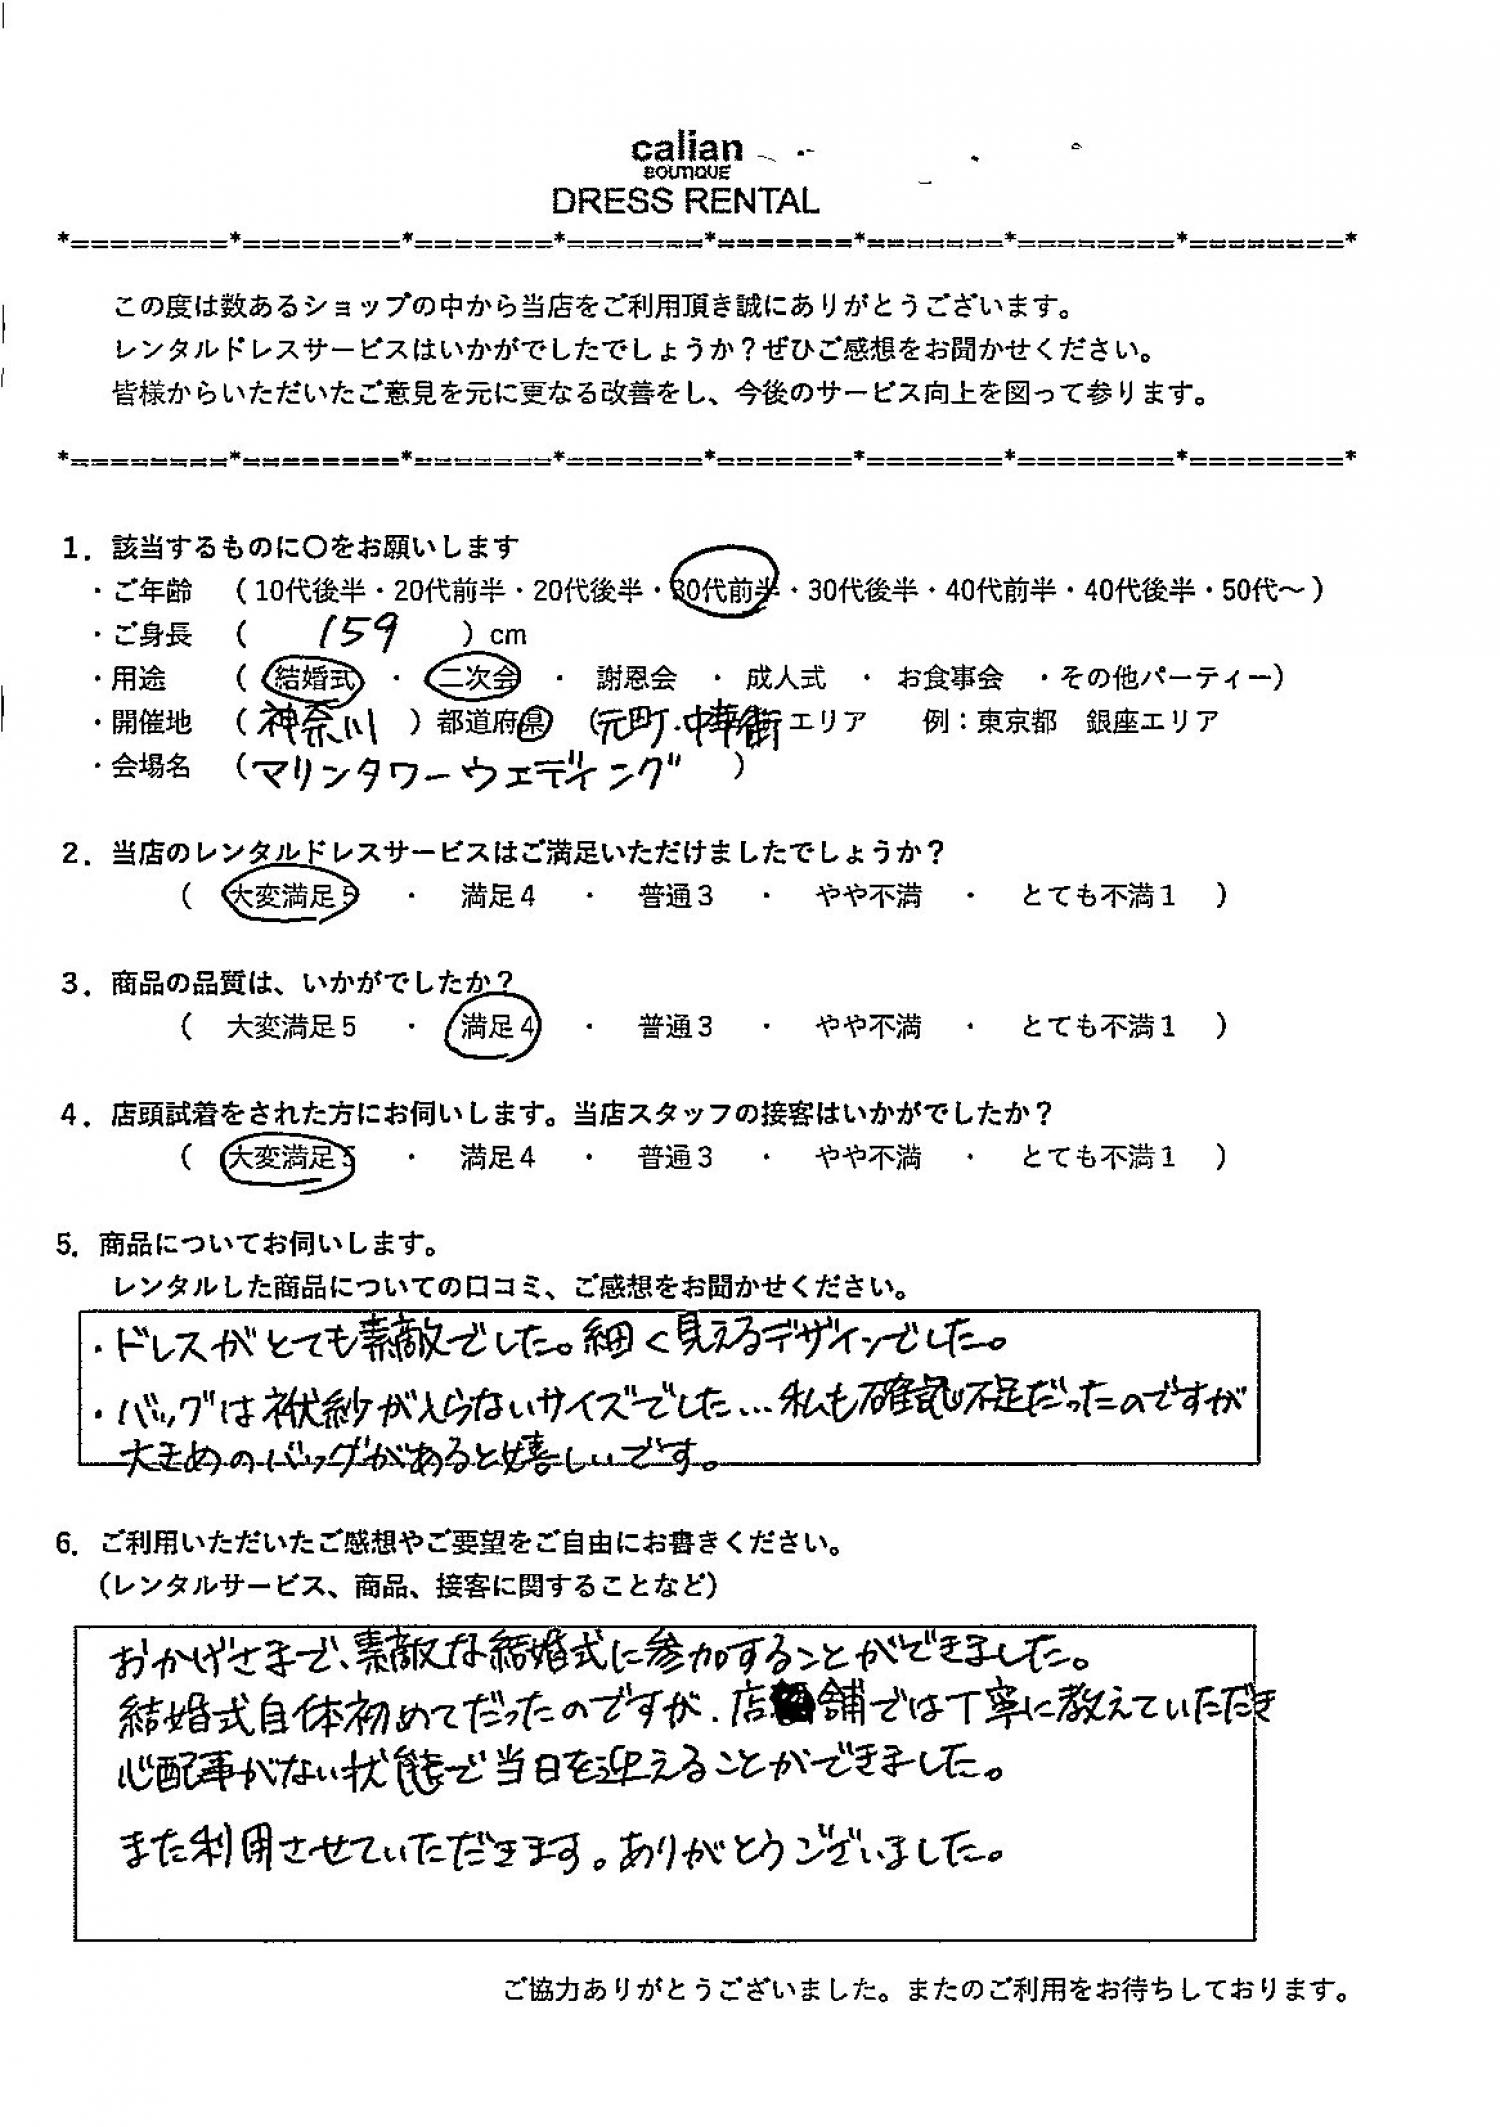 calian
BOUTIQUE
DRESS RENTAL
*========*========*=======*=======*=======*=======*========*========*
この度は数あるショップの中から当店をご利用頂き誠にありがとうございます。
レンタルドレスサービスはいかがでしたでしょうか？ぜひご感想をお聞かせください。
皆様からいただいたご意見を元に更なる改善をし、今後のサービス向上を図って参ります。
*========*========*=======*=======*=======*=======*========*========*
1．該当するものに〇をお願いします
・ご年齢 （10代後半・20代前半・20代後半・30代前半・30代後半・40代前半・40代後半・50代～）
・ご身長 （ 159 ）cm
・用途 （ 結婚式 ・ 二次会 ・ 謝恩会 ・ 成人式 ・ お食事会 ・その他パーティー）
・開催地 （神奈川 ）都道府県 （元町．中華街 エリア 例：東京都 銀座エリア
・会場名 （マリンタワーウェディング ）
2．当店のレンタルドレスサービスはご満足いただけましたでしょうか？
（ 大変満足5 ・ 満足4 ・ 普通3 ・ やや不満 ・ とても不満1 ）
3．商品の品質は、いかがでしたか？
（ 大変満足5 ・ 満足4 ・ 普通3 ・ やや不満 ・ とても不満1 ）
4．店頭試着をされた方にお伺いします。当店スタッフの接客はいかがでしたか？
（ 大変満足5 ・ 満足4 ・ 普通3 ・ やや不満 ・ とても不満1 ）
5．商品についてお伺いします。
レンタルした商品についての口コミ、ご感想をお聞かせください。
・ドレスがとても素敵でした。細く見えるデザインでした。
・バッグは袱紗が入らないサイズでした…私も確認不足だったのですが
大きめのバッグがあると嬉しいです。
6．ご利用いただいたご感想やご要望をご自由にお書きください。
（レンタルサービス、商品、接客に関することなど）
おかげさまで、素敵な結婚式に参加することができました。
結婚式自体初めてだったのですが、店舗では丁寧に教えていただき
心配事がない状態で当日を迎えることができました。
また利用させていただきます。ありがとうございました。
ご協力ありがとうございました。またのご利用をお待ちしております。